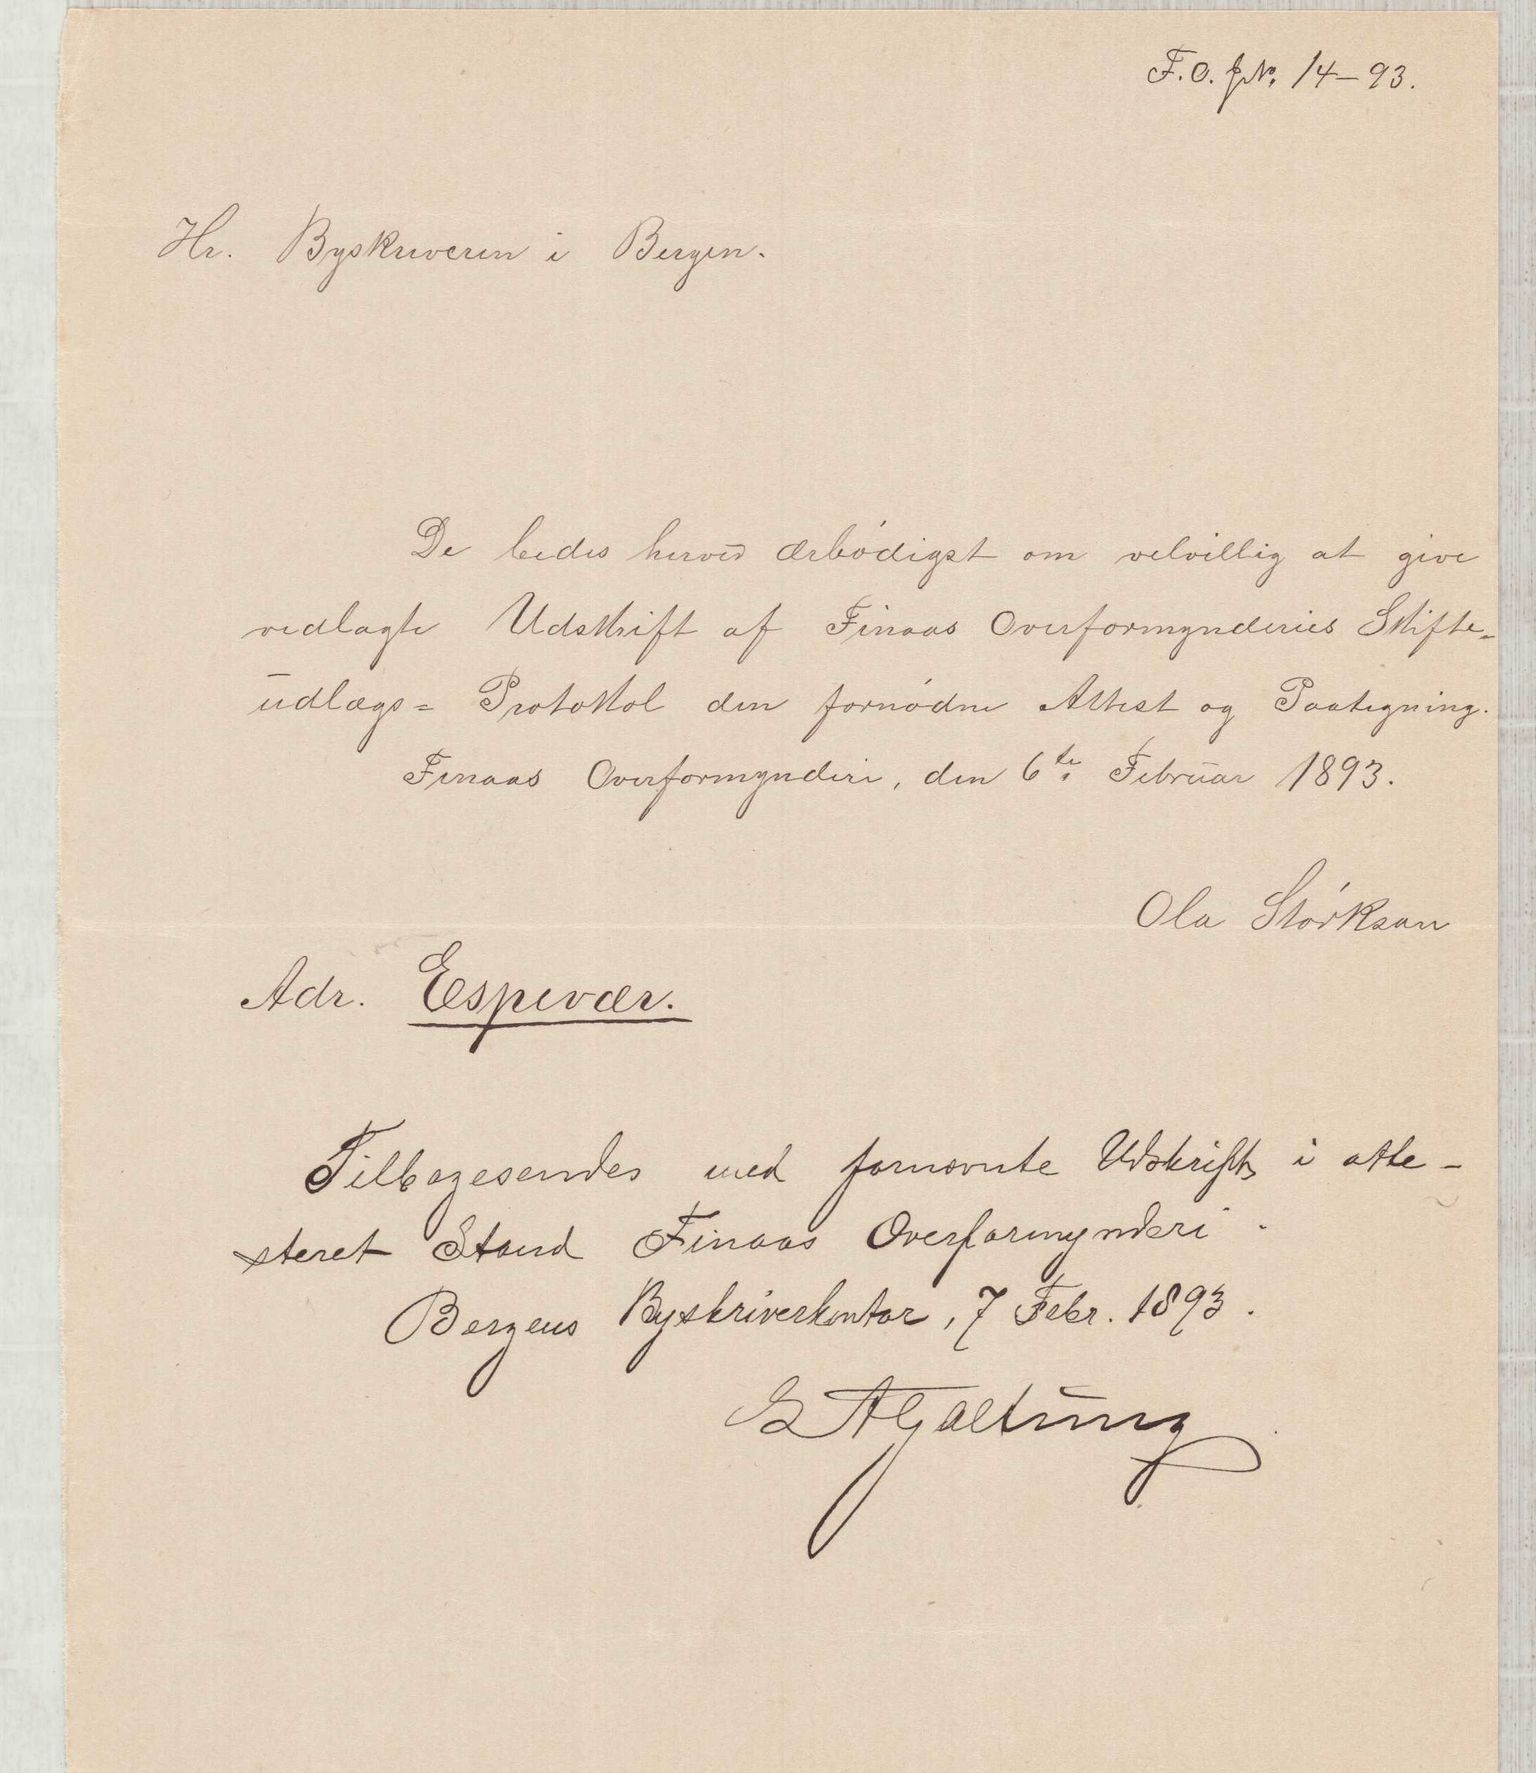 F. O. J№. 14-93.
Hr. Byskriveren i Bergen.
De bedes herved ærbódigst om velvillig at give
vedlagte Udskrift af Finaas Overformynderies Skifte-
udlægs= Protokkol den fornódne Attest og Paategning.
Finaas Overformynderi, den 6te. Februar 1893.
Ola Stórksan
Adr. Espevær.
Tilbagesendes med fornævnte Udskrift i atte-
steret Stand Finaas Overformynderi.
Bergens Byskriverkontor, 7 Febr. 1893.
Galtung